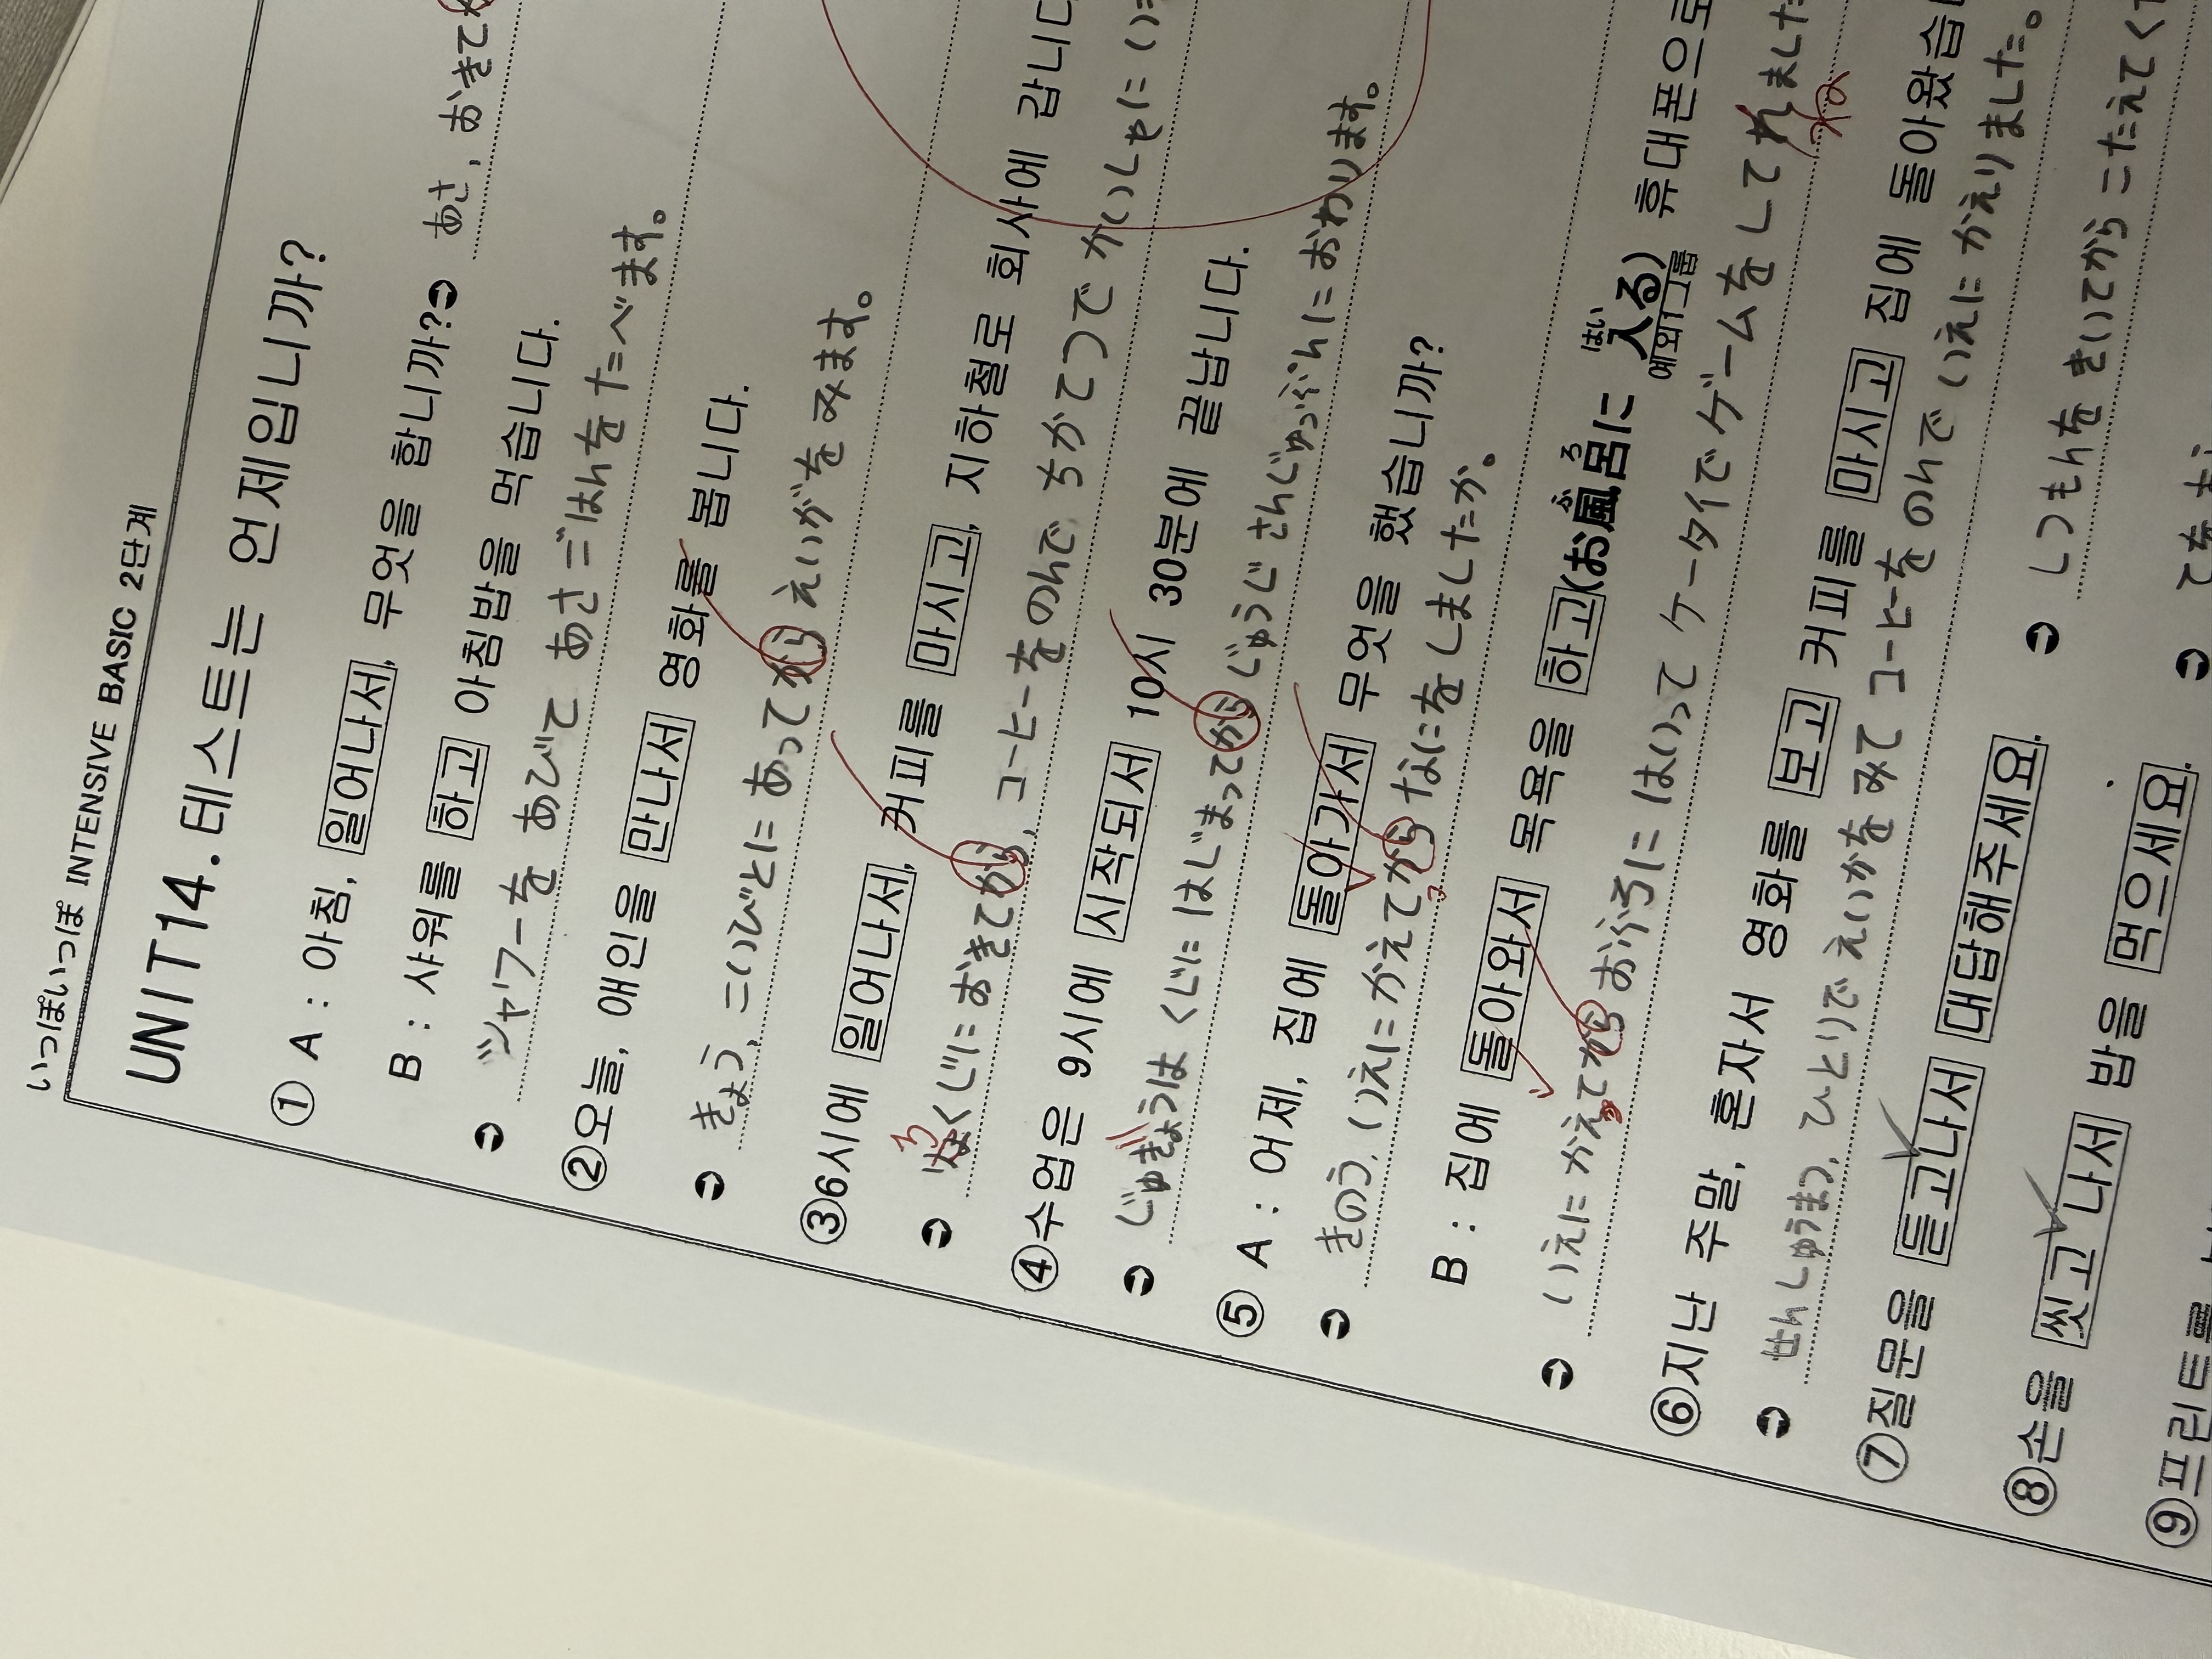 いっぽいっぽ INTENSIVE BASIC 2단계
UNIT14. 테스트는 언제입니까?
① A : 아침, 일어나서, 무엇을 합니까?➲ あさ, おきて
B : 샤워를 하고 아침밥을 먹습니다.
➲ シャワーを あびて あさごはんを たべます。
②오늘, 애인을 만나서 영화를 봅니다.
➲ きょう, こいびとに あってから えいがを みます。
③6시에 일어나서, 커피를 마시고, 지하철로 회사에 갑니다
ろ
➲ くじに おきてから, コーヒーを のんで ちかてつで かいしゃに い
④수업은 9시에 시작되서 10시 30분에 끝납니다.
➲ じゅぎょうは くじに はじまってから じゅうじ さんじゅっぷんに おわります。
⑤ A : 어제, 집에 돌아가서 무엇을 했습니까?
➲ きのう, いえに かえてから なにを しましたか。
B : 집에 돌아와서 목욕을 하고(お風呂に 入る) 휴대폰으로
ふ ろ はい
예외1그룹
➲ いえに かえてから おふろに はいって ケータイで ゲームを して れました
ね
⑥지난 주말, 혼자서 영화를 보고 커피를 마시고 집에 돌아왔습니
➲ せんしゅうまつ, ひとりで えいがを みて コーヒーを のんで いえに かえりました。
⑦질문을 듣고나서 대답해주세요. ➲ しつもんを きいてから こたえて く
⑧손을 씻고 나서 밥을 먹으세요. ➲ てを
⑨프린트를